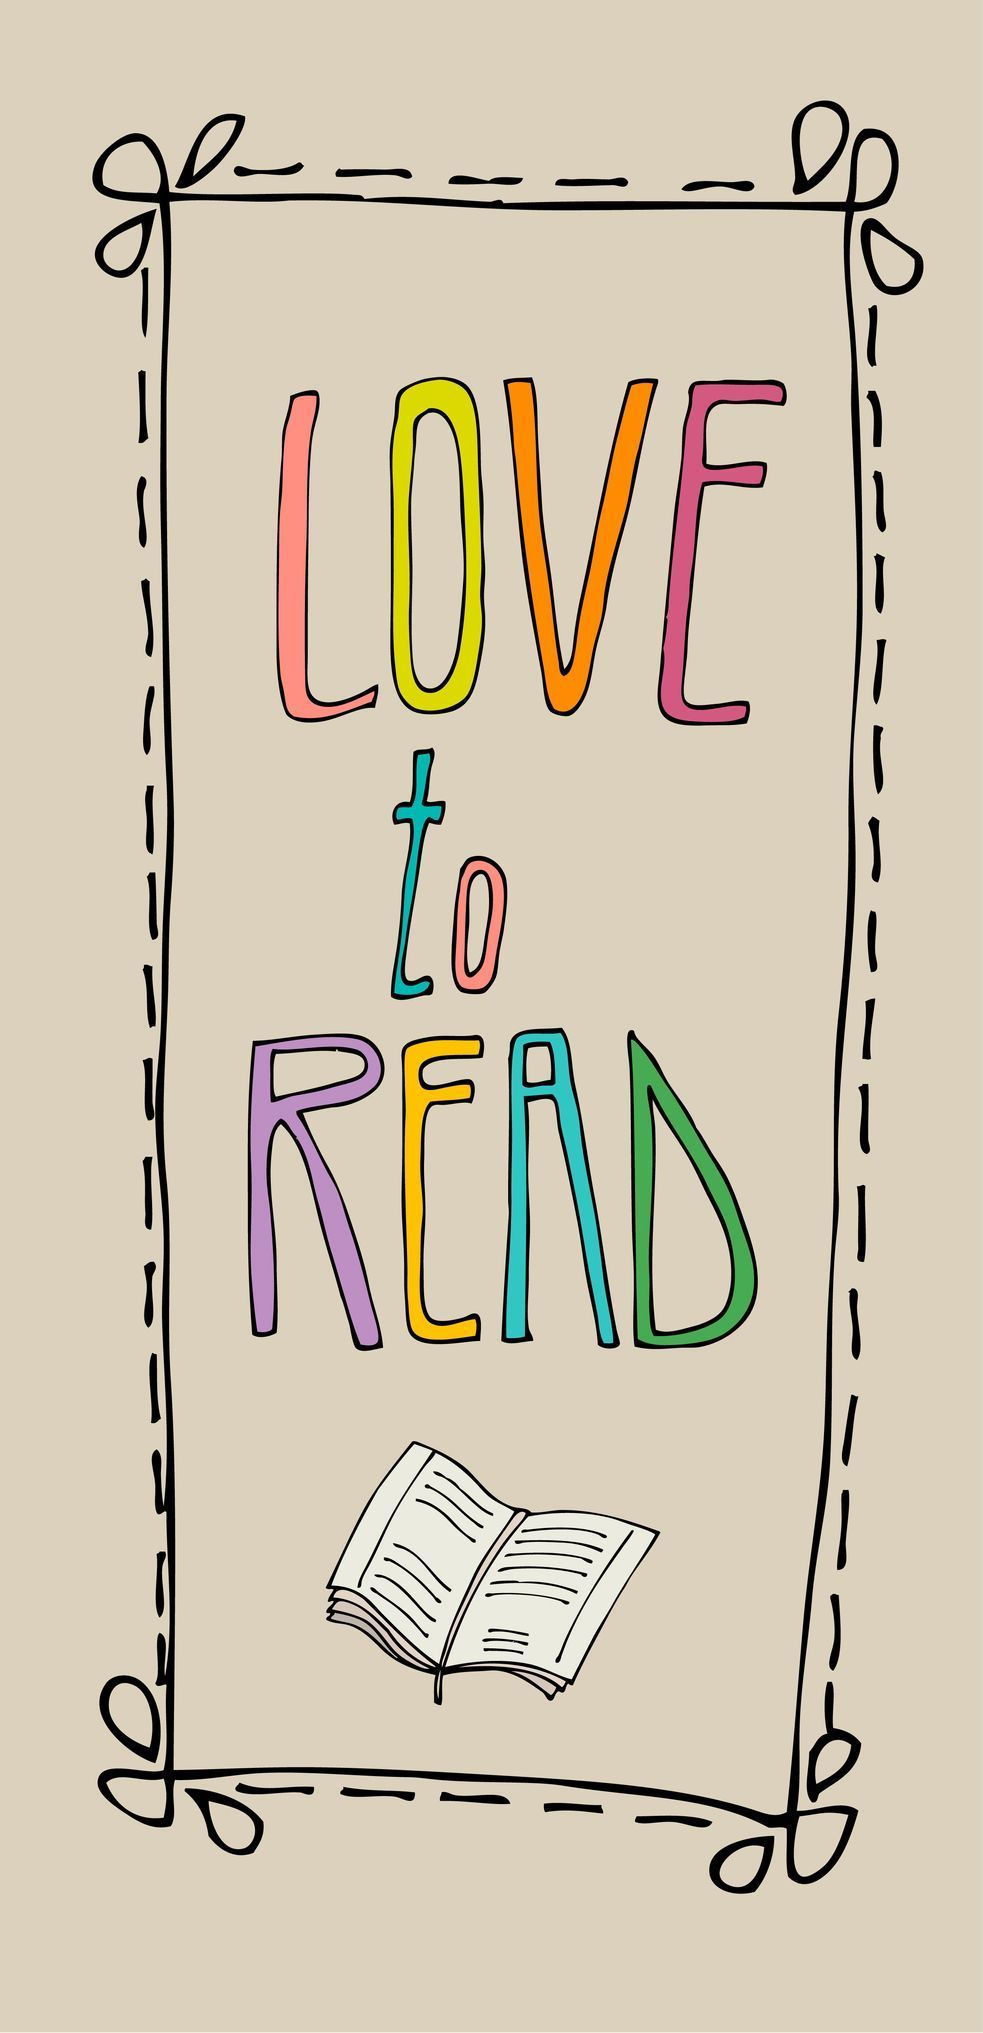 LOVE
to
READ